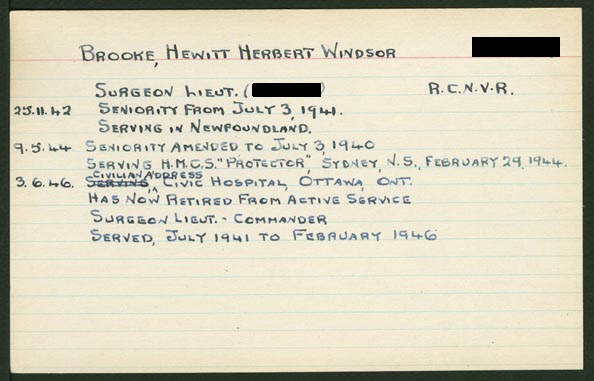 BROOKE, HEWITT HERBERT WINDSOR
SURGEON LIEUT. ( ) R.C.N.V.R.
25.11.42 SENIORITY FROM JULY 3, 1941.
SERVING IN NEWFOUNDLAND.
9.5.44 SENIORITY AMENDED TO JULY 3, 1940
SERVING H.M.C.S. "PROTECTOR", SYDNEY, N.S., FEBRUARY 29, 1944.
CIVILIAN ADDRESS
3.6.46. SERVING, CIVIC HOSPITAL, OTTAWA, ONT.
HAS NOW RETIRED FROM ACTIVE SERVICE
SURGEON LIEUT.-COMMANDER
SERVED, JULY 1941 TO FEBRUARY 1946